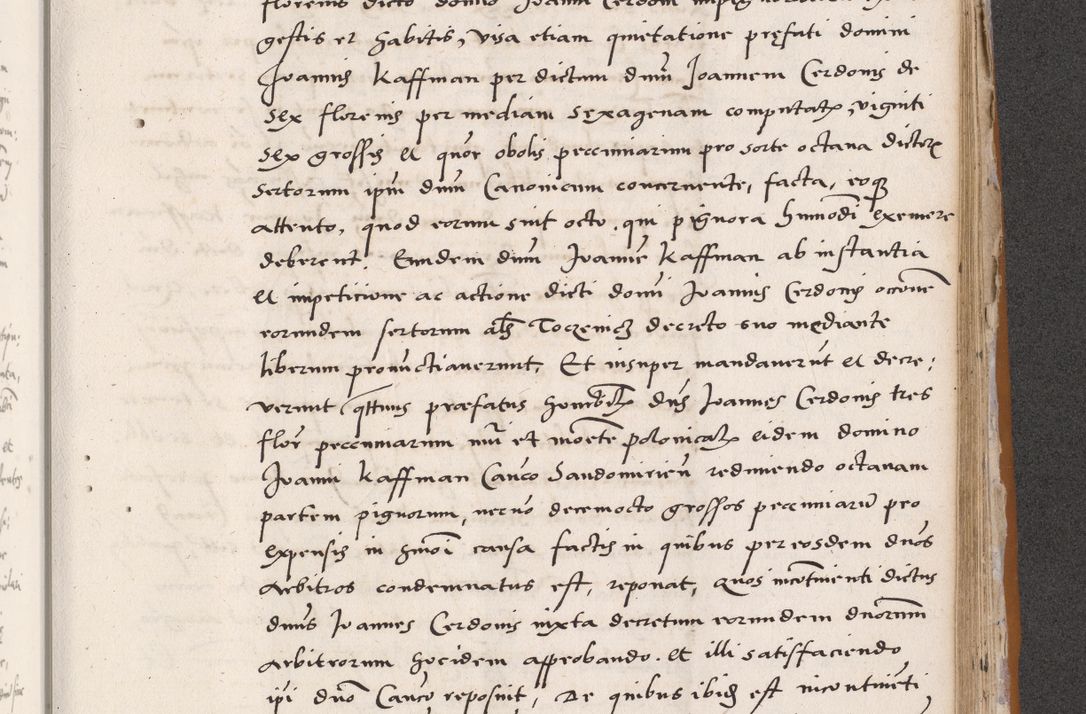 florenis dicto domino Joanni Cerdoni
gestis et habitis, visa etiam quietatione pręfati domini
Joannis Kaffman per dictum dnm Joannem Cerdonis de
sex florenis per mediam sexagenam computatꝝ, viginti
sex grossis et quor obolis pecuniarum pro sorte octava dictorꝝ
sertorum ipm dnm Canonicum concernente, facta, eoqꝫ
attento, quod eorum sint octo, qui pignora hmnodi exemere
deberent. Eundem dnm Joannē Kaffman ab instantia
et impeticione ac actione dicti domi Joannis Cerdonis occōne
eorundem sertorum als Toczenicz decreto suo mediante
liberum pronunctiaverunt, Et insuper mandaverūt et decre:
verunt qttnus praefatus honorabilꝫ dns Joannes Cerdonis tres
flor pecuniarum nūi et moēte polonicalꝝ eidem domino
Joanni Kaffman Canco Sandomirien redimendo octavam
partem pignorum, necno decemocto grossos pecuniarū pro
expensis in hmoi causa factis in quibus per eosdem dnos
arbitros condemnatus est, reponat, quos incōtinenti dictus
dnus Joannes Cerdonis iuxta decretum eorundem dnorum
arbitrorum hocidem approbando. et illi satisfaciendo
ipi dno Canco reposuit, De quibus ibidꝫ est incontinēti